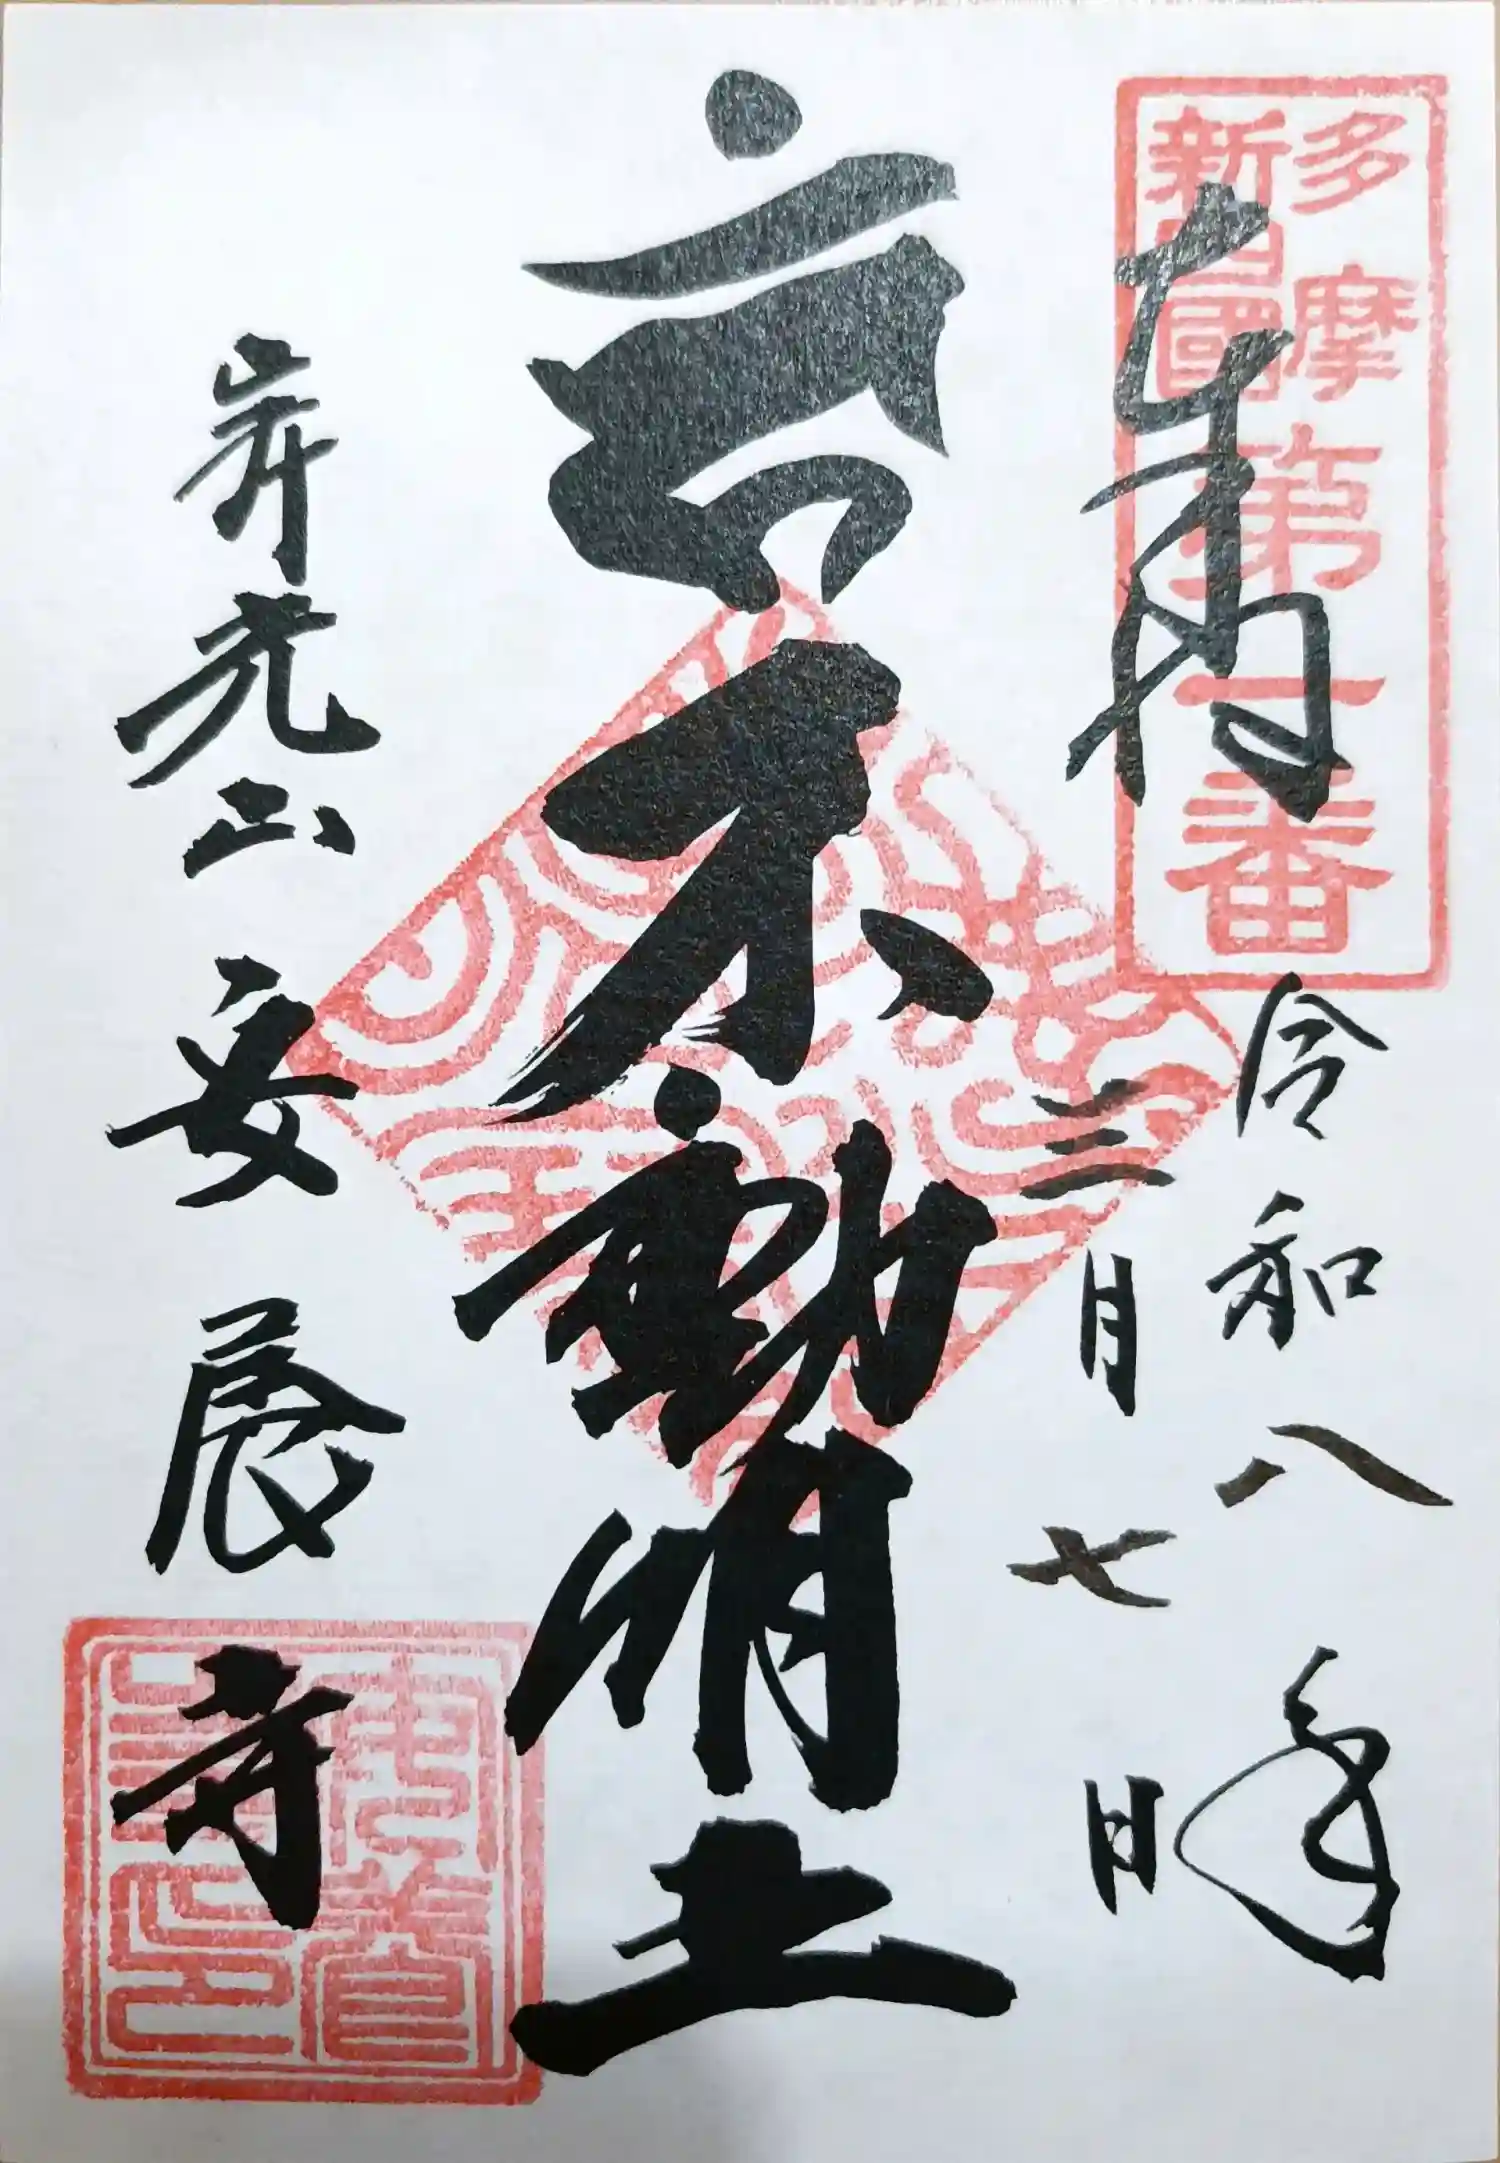 多摩
新四國
第一番
奉拝
令和八年
三月七日
不動明王
光山
安養寺